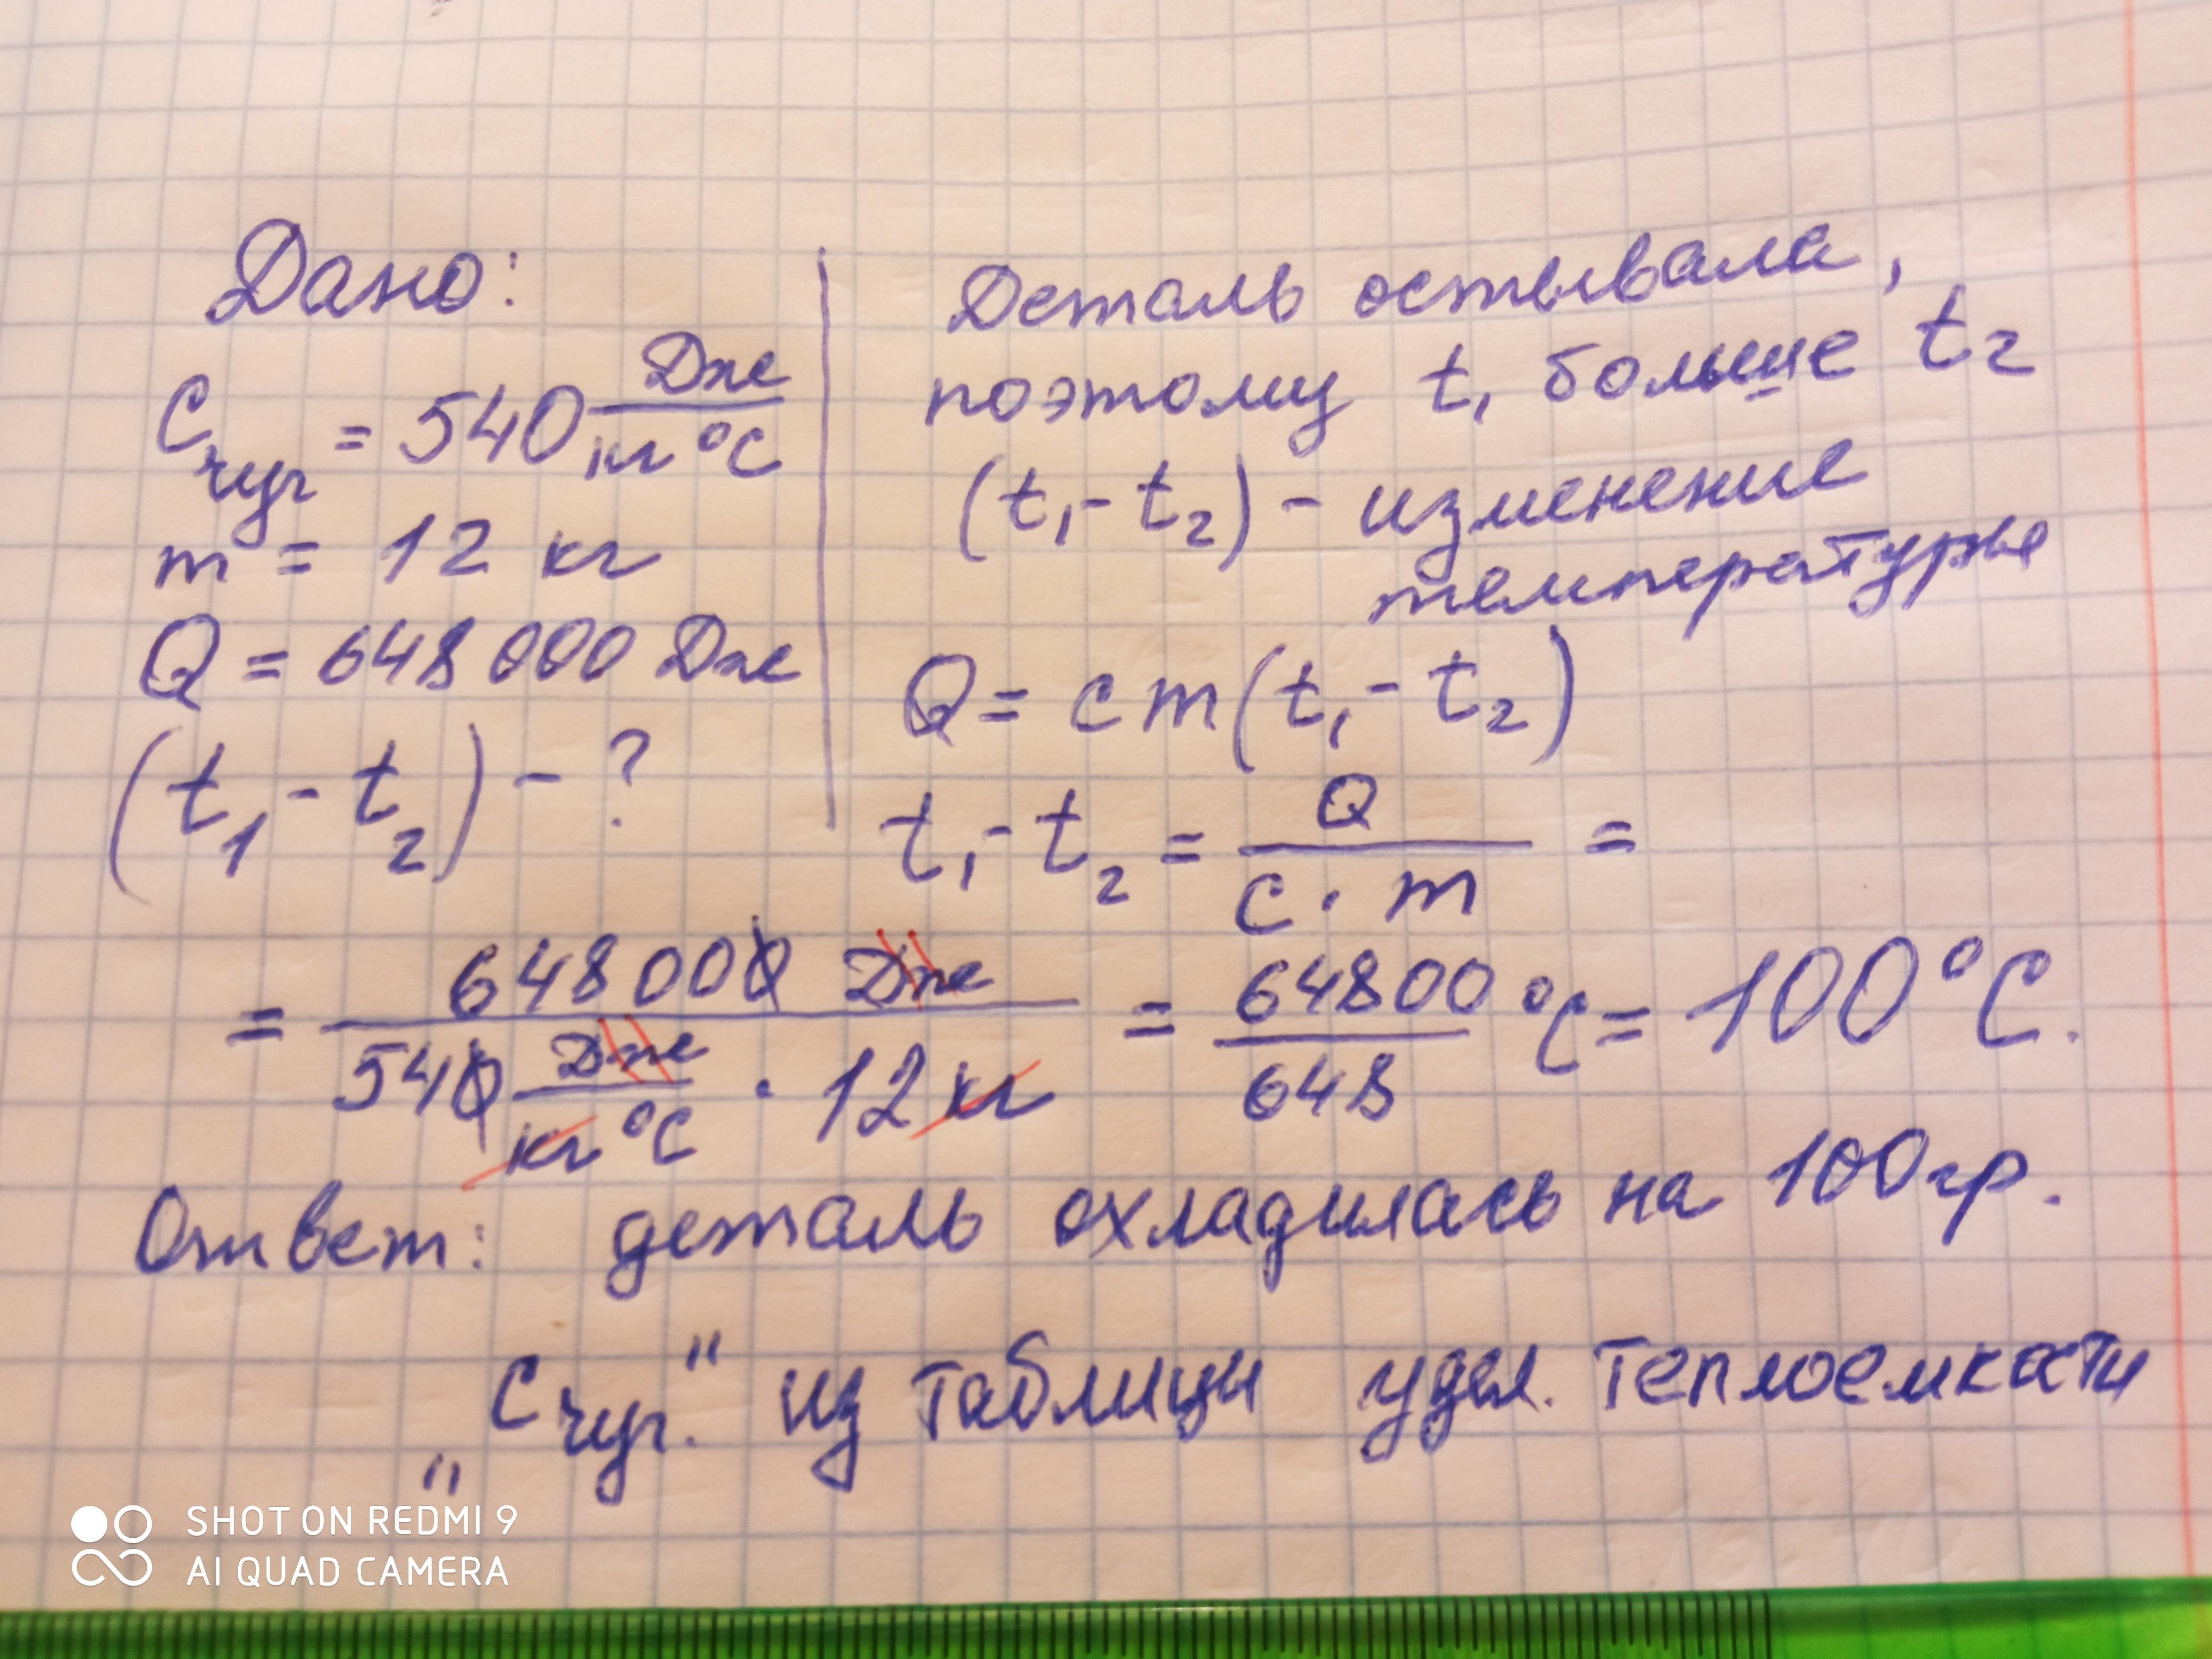 Дано:
C чуг = 540 Дж/кг°C
m = 12 кг
Q = 648 000 Дж
(t₁ - t₂) - ?
Деталь остывала,
поэтому t₁ больше t₂
(t₁ - t₂) - изменение
температуры
Q = c m (t₁ - t₂)
t₁ - t₂ = Q / c · m =
= 648 000 Дж / 540 Дж/кг°C · 12 кг = 64800/648 °C = 100°C.
Ответ: деталь охладилась на 100 гр.
„C чуг.“ из таблицы удел. теплоемкости
SHOT ON REDMI 9
AI QUAD CAMERA